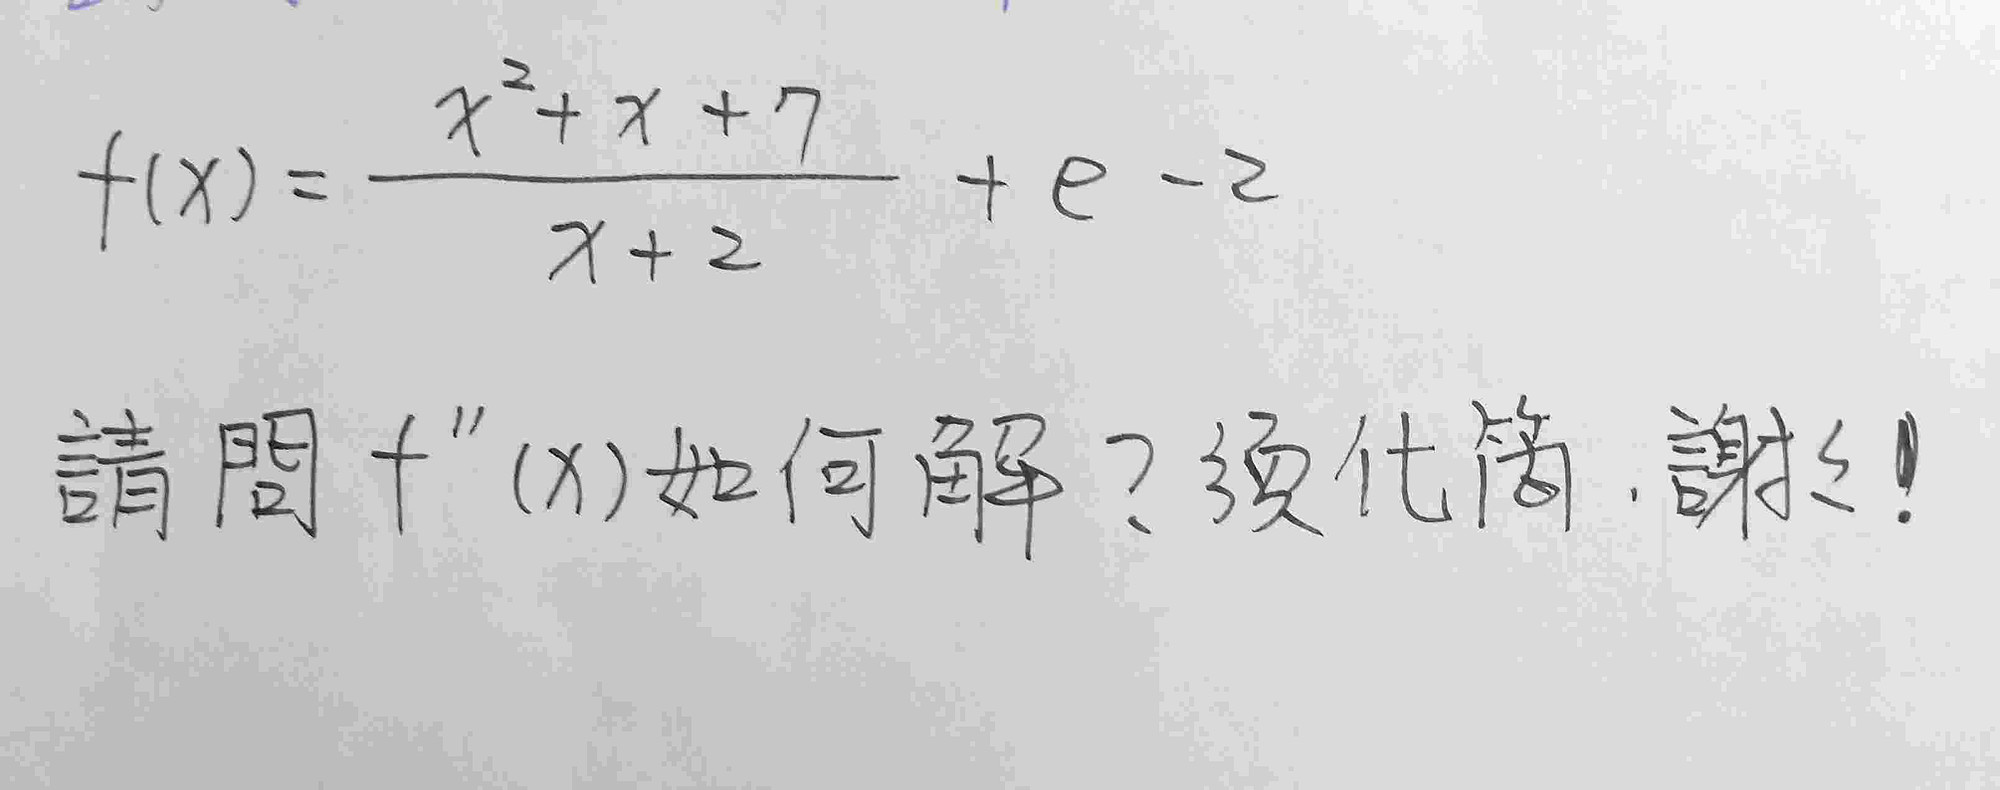 f(x) = \frac{x^2+x+7}{x+2} + e - 2
請問 f''(x) 如何解？須化簡．謝謝！